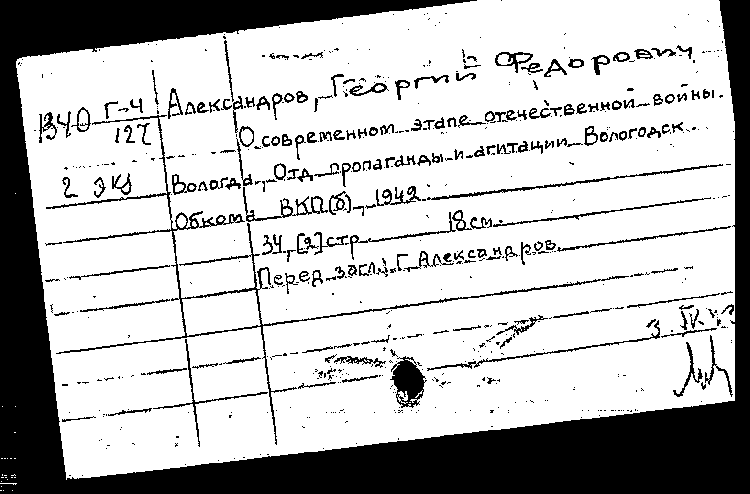 1340 Г-4
127
2 экз
Александров, Георгий Федорович
О современном этапе отечественной войны.
Вологда, Отд. пропаганды и агитации Вологодск.
Обкома ВКП(б), 1942.
34, [2] стр. 18 см.
Перед загл.: Г. Александров.